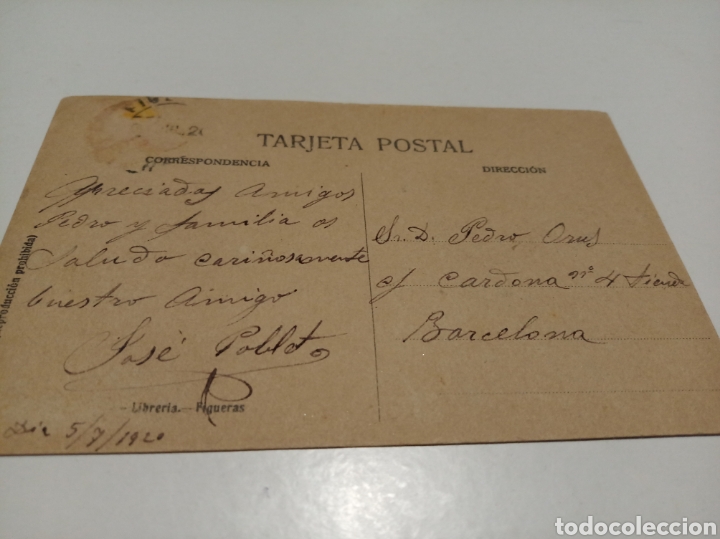 TARJETA POSTAL
CORRESPONDENCIA
DIRECCIÓN
Apreciados Amigos
Pedro y familia os
Saludo cariñosamente
buestro Amigo
José Poblet
Sr. D. Pedro Orus
c/ Cardona nº 4 tienda
Barcelona
Librería.—Figueras
Día 5/7/1920
producción prohibida)
todocoleccion